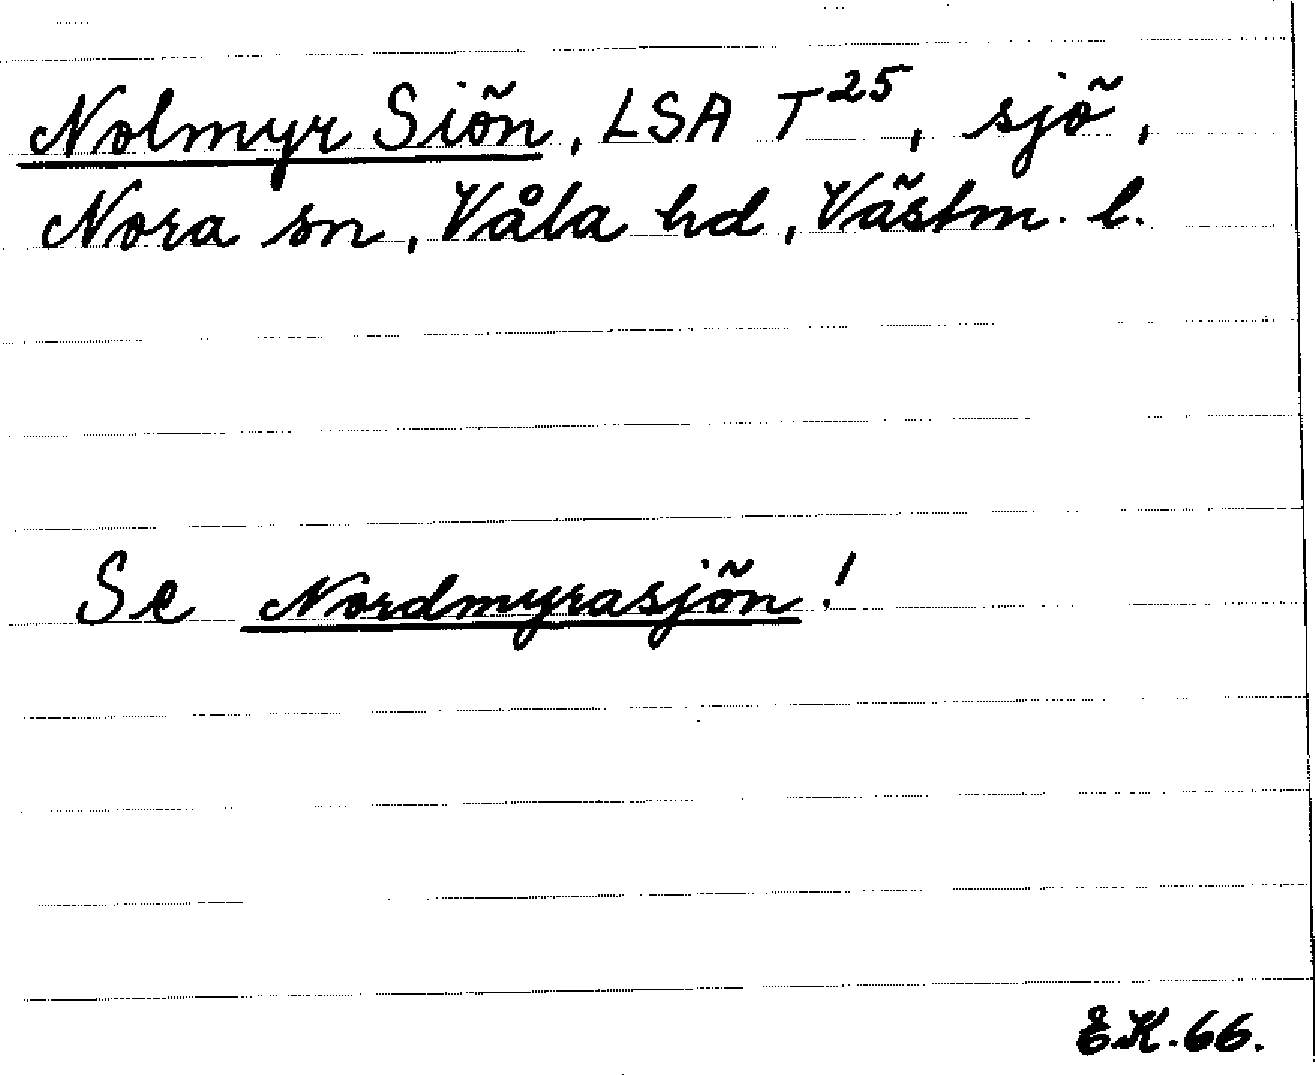 Nolmyr Siön, LSA T²⁵, sjö,
Nora sn, Våla hd, Västm. l.
Se Nordmyrasjön!
E.K. 66.